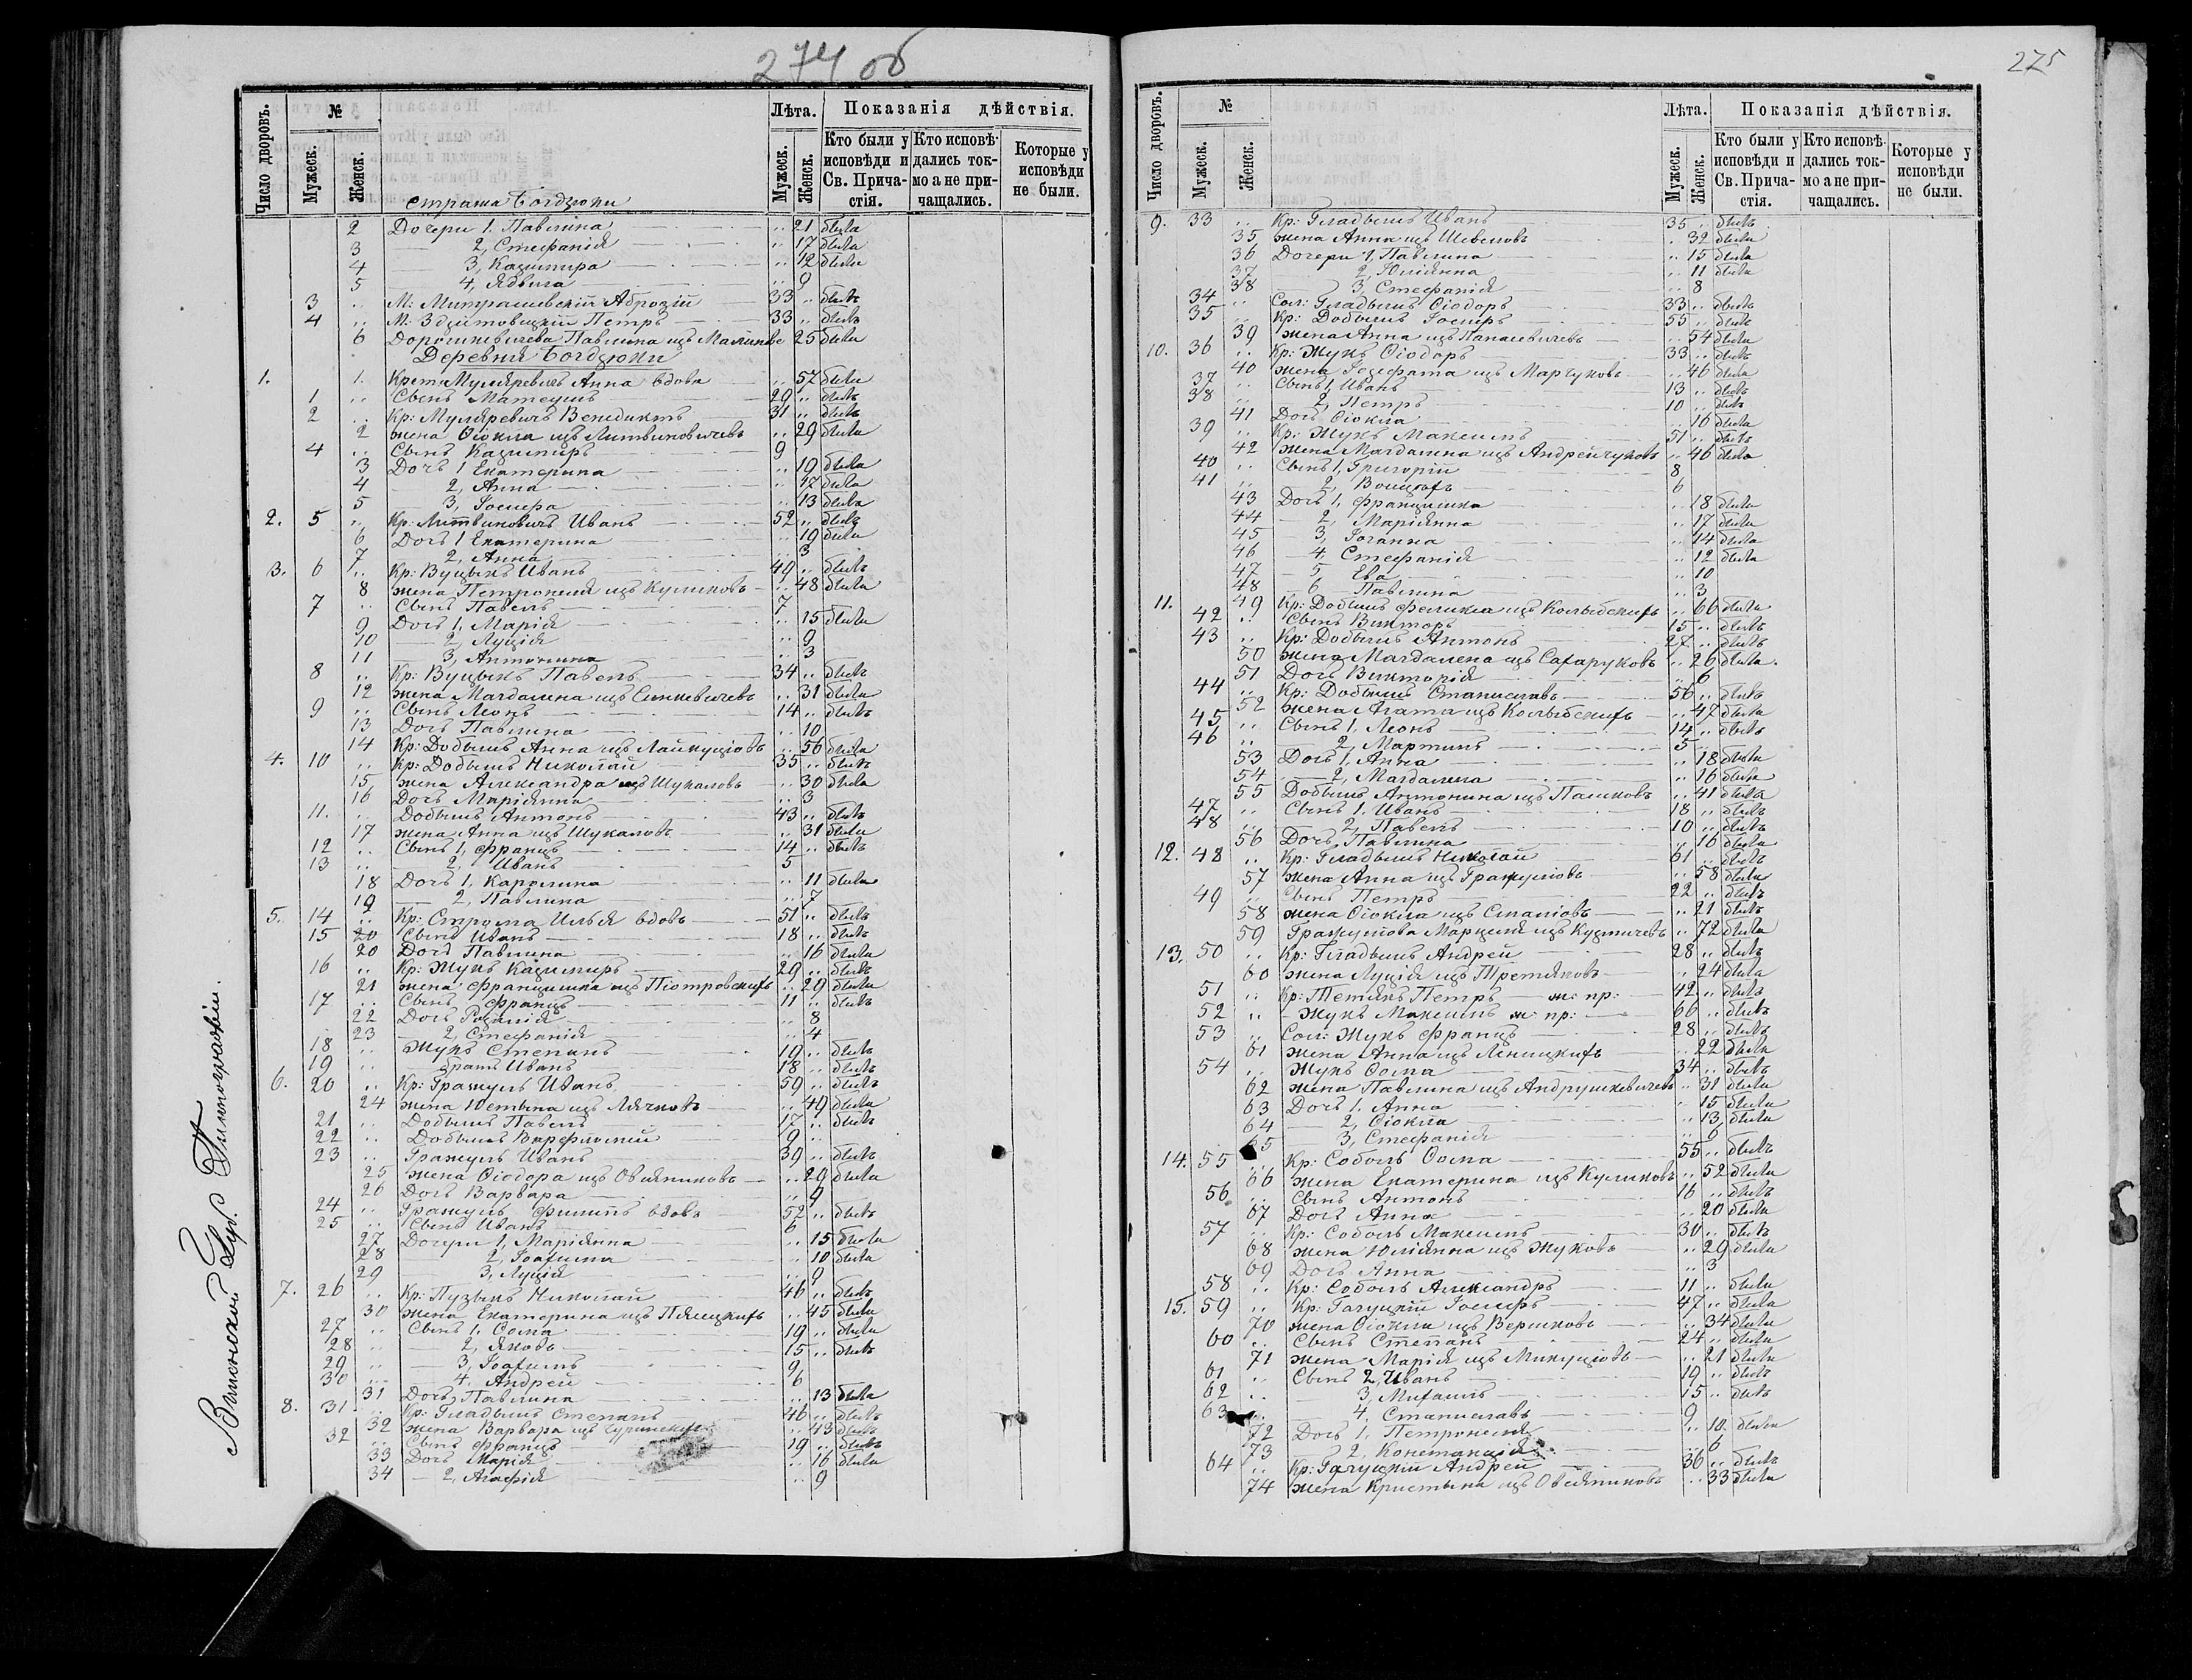 274 об
Число дворовъ. № Лѣта. Показанія дѣйствія.
Мужеск. Женск. Мужеск. Женск. Кто были у исповѣди и Св. Причастія. Кто исповѣдались токмо а не причащались. Которые у исповѣди не были.
страша Богдзюки
2 Дочери 1. Павлина .. 21 была
3 2, Стефанія .. 17 была
4 3, Казимира .. 12 была
5 4, Ядвига .. 9
3 .. М: Митрашевскій Аброзій 33 .. былъ
4 .. М: Здзитовецкій Петръ 33 .. былъ
6 Дорошкевичева Павлина изъ 25 была
Деревня Богдзюки
1. 1. Крест: Муляревичъ Анна вдова .. 57 была
1 .. Сынъ Матеушъ 29 .. былъ
2 .. Кр: Муляревичъ Венедиктъ 31 .. былъ
2 жена Ѳіокла изъ Литвиновичевъ .. 29 была
4 .. Сынъ Казимиръ 9
3 Дочь 1 Екатерина .. 19 была
4 2, Анна .. 17 была
5 3, Іосифа .. 13 была
2. 5 .. Кр: Литвиновичъ Иванъ 52 .. былъ
6 Дочь 1 Екатерина .. 19 была
7 2, Анна .. 3
3. 6 .. Кр: Вуцыкъ Иванъ 49 .. былъ
8 жена Петронеля изъ Куликовъ .. 48 была
7 .. Сынъ Павелъ 7
9 Дочь 1. Марія .. 15 была
10 2, Луція .. 9
11 3, Антонина .. 3
8 .. Кр: Вуцыкъ Павелъ 34 .. былъ
12 жена Магдалена изъ Синкевичевъ .. 31 была
9 .. Сынъ Леонъ 14 .. былъ
13 Дочь Павлина .. 10
14 Кр: Добышъ Анна изъ Лайкуціовъ .. 56 была
4. 10 .. Кр: Добышъ Николай 35 .. былъ
15 жена Александра изъ Шукаловъ .. 30 была
16 Дочь Маріянна .. 3
11. .. Добышъ Антонъ 43 .. былъ
17 жена Анна изъ Шукаловъ .. 31 была
12 .. Сынъ 1, Францъ 14 .. былъ
13 .. 2, Иванъ 5
18 Дочь 1, Каролина .. 11 была
19 2, Павлина .. 7
5. 14 .. Кр: Строма Илья вдовъ 51 .. былъ
15 20 Сынъ Иванъ 18 .. былъ
20 Дочь Павлина .. 16 была
16 .. Кр: Жукъ Казимиръ 29 .. былъ
21 жена Францишка изъ Піотровскихъ .. 29 была
17 .. Сынъ Францъ 11 .. былъ
22 Дочь Розалія .. 8
23 2, Стефанія .. 4
18 .. Жукъ Степанъ 19 .. былъ
19 .. братъ Иванъ 18 .. былъ
6. 20 .. Кр: Гражуль Иванъ 59 .. былъ
24 жена Юстына изъ Лячковъ .. 49 была
21 .. Добышъ Павелъ 17 .. былъ
22 .. Добышъ Варфломей 9 ..
23 .. Гражуль Иванъ 39 .. былъ
25 жена Ѳіодора изъ Овсяниковъ .. 29 была
26 Дочь Варвара .. 9
24 .. Гражуль Филипъ вдовъ 52 .. былъ
25 .. Сынъ Иванъ 6
27 Дочери 1, Маріянна .. 15 была
28 2, Іоахима .. 10 была
29 3, Луція .. 9
7. 26 .. Кр: Пузыкъ Николай 46 .. былъ
30 жена Екатерина изъ .. 45 была
27 .. Сынъ 1. Ѳома 19 .. былъ
28 .. 2, Яковъ 15 .. былъ
29 .. 3, Іоахимъ 9
30 .. 4. Андрей 6
31 Дочь Павлина .. 13 была
8. 31 .. Кр: Гладышъ Степанъ 46 .. былъ
32 жена Варвара изъ .. 43 была
32 .. Сынъ Францъ 19 .. былъ
33 Дочь Марія .. 16 была
34 2, Агафія .. 9
Виленской Губ. Типографіи.
275
Число дворовъ. № Лѣта. Показанія дѣйствія.
Мужеск. Женск. Мужеск. Женск. Кто были у исповѣди и Св. Причастія. Кто исповѣдались токмо а не причащались. Которые у исповѣди не были.
9. 33 .. Кр: Гладышъ Иванъ 35 .. былъ
35 жена Анна изъ Шевеловъ .. 32 была
36 Дочери 1, Павлина .. 15 была
37 2, Юліянна .. 11 была
38 3, Стефанія .. 8
34 .. Сол: Гладышъ Ѳіодоръ 33 .. былъ
35 .. Кр: Добышъ Іосифъ 55 .. былъ
39 жена Анна изъ Панасевичевъ .. 54 была
10. 36 .. Кр: Жукъ Ѳіодоръ 33 .. былъ
40 жена Іозефата изъ Марчуковъ .. 46 была
37 .. Сынъ 1, Иванъ 13 .. былъ
38 2, Петръ 10 .. былъ
41 Дочь Ѳіокла .. 16 была
39 .. Кр: Жукъ Максимъ 51 .. былъ
42 жена Магдалина изъ Андрейчуковъ .. 46 была
40 .. Сынъ 1, Григорій 8
41 .. 2, Войцехъ 6
43 Дочь 1, Францишка .. 18 была
44 2, Маріянна .. 17 была
45 3, Іоганна .. 14 была
46 4, Стефанія .. 12 была
47 5 Ева .. 10
48 6 Павлина .. 3
11. 49 Кр: Добышъ Фелікса изъ Колыбскихъ .. 66 была
42 .. Сынъ Викторъ 15 .. былъ
43 .. Кр: Добышъ Антонъ 27 .. былъ
50 жена Магдалена изъ Сахаруковъ .. 26 была
51 Дочь Викторія .. 6
44 .. Кр: Добышъ Станиславъ 56 .. былъ
52 жена Агата изъ Колыбскихъ .. 47 была
45 .. Сынъ 1, Леонъ 14 .. былъ
46 .. 2, Мартинъ 5
53 Дочь 1, Анна .. 18 была
54 2, Магдалена .. 16 была
55 Добышъ Антонина изъ Пашковъ .. 41 была
47 .. Сынъ 1. Иванъ 18 .. былъ
48 .. 2, Павелъ 10 .. былъ
56 Дочь Павлина .. 16 была
12. 48 .. Кр: Гладышъ Николай 61 .. былъ
57 жена Анна изъ Гражулловъ .. 58 была
49 .. Сынъ Петръ 22 .. былъ
58 жена Ѳіокла изъ .. 21 былъ
59 Гражулова Марцеля изъ Кузмичевъ .. 72 была
13. 50 .. Кр: Гладышъ Андрей 28 .. былъ
60 жена Луція изъ Третяковъ .. 24 была
51 .. Кр: Тетякъ Петръ м: пр: 42 .. былъ
52 .. Жукъ Максимъ м: пр: 66 .. былъ
53 .. Сол: Жукъ Францъ 28 .. былъ
61 жена Анна изъ .. 22 была
54 .. Жукъ Ѳома 34 .. былъ
62 жена Павлина изъ Андрушкевичевъ .. 31 была
63 Дочь 1. Анна .. 15 была
64 2, Ѳіокла .. 13 была
65 3, Стефанія .. 6
14. 55 .. Кр: Соболь Ѳома 55 .. былъ
66 жена Екатерина изъ Куликовъ .. 52 была
56 .. Сынъ Антонъ 16 .. былъ
67 Дочь Анна .. 20 была
57 .. Кр: Соболь Максимъ 30 .. былъ
68 жена Юліянна изъ Жуковъ .. 29 была
69 Дочь Анна .. 3
58 .. Кр: Соболь Александръ 11 .. была
15. 59 .. Кр: Гагуцкій Іосифъ 47 .. была
70 жена Ѳіокла изъ Вершковъ .. 34 была
60 .. Сынъ Степанъ 24 .. была
71 жена Марія изъ Микуціовъ .. 21 была
61 .. Сынъ 2, Иванъ 19 .. былъ
62 .. 3, Михаилъ 15 .. былъ
63 .. 4. Станиславъ 9
72 Дочь 1, Петронеля .. 10. была
73 2, Констанція .. 6
64 .. Кр: Гагуцкій Андрей 36 .. былъ
74 жена Кристына изъ Овсяниковъ .. 33 была